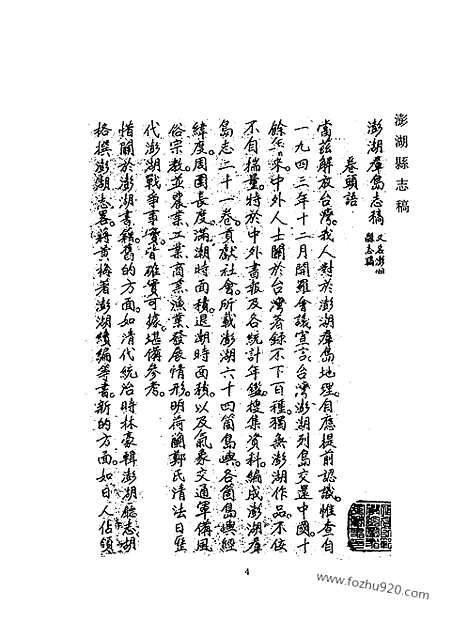 澎湖縣志稿
澎湖羣島志稿 又名澎湖縣志稿
卷頭語
當茲解放台灣。我人對於澎湖羣島地理。自應提前認識。惟查自
一九四三年十二月開羅會議宣言。台灣澎湖列島交還中國。十
餘年來。中外人士關於台灣著錄不下百種。獨無澎湖作品。不佞
不自揣量。特於中外書報及各統計年鑑。搜集資料。編成澎湖羣
島志二十一卷。貢獻社會。所載澎湖六十四箇島嶼。各箇島嶼經
緯度。周圍長度。滿潮時面積。退潮時面積。以及氣象交通軍備風
俗宗教。並農業工業商業漁業發展情形。明荷蘭鄭氏清法日隻
代澎湖戰爭事實。皆確實可據。堪備參考。
惜關於澎湖書籍。舊的方面。如清代統治時林豪輯澎湖廳志。胡
格撰澎湖志畧。蔣黃梅著澎湖續編等書。新的方面。如日人佔領
4
www.fozhu920.com